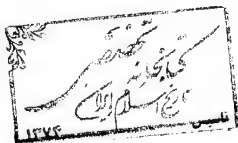 کتابخانه تخصصی
تاریخ اسلام ایران
تاسیس ۱۳۷۴